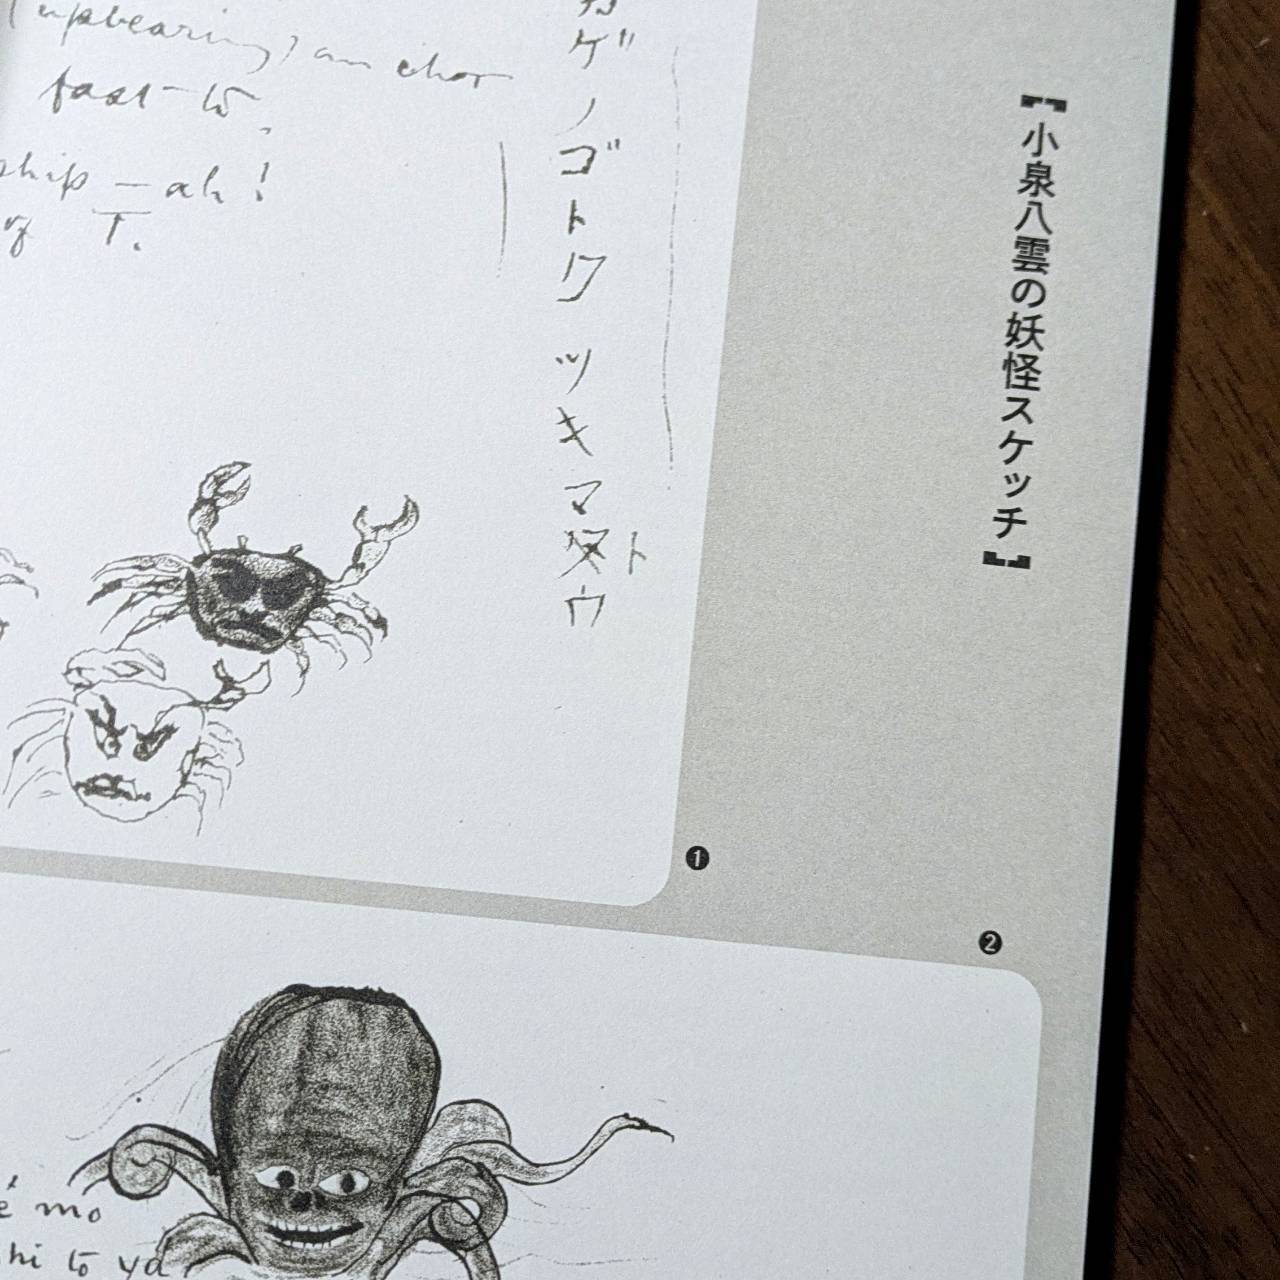 【小泉八雲の妖怪スケッチ】
ゲノゴトク ツキマ
ト
ウ
upbearing, anchor
fast-to,
ship — ah!
T.
❶
❷
mo
hi tō ya